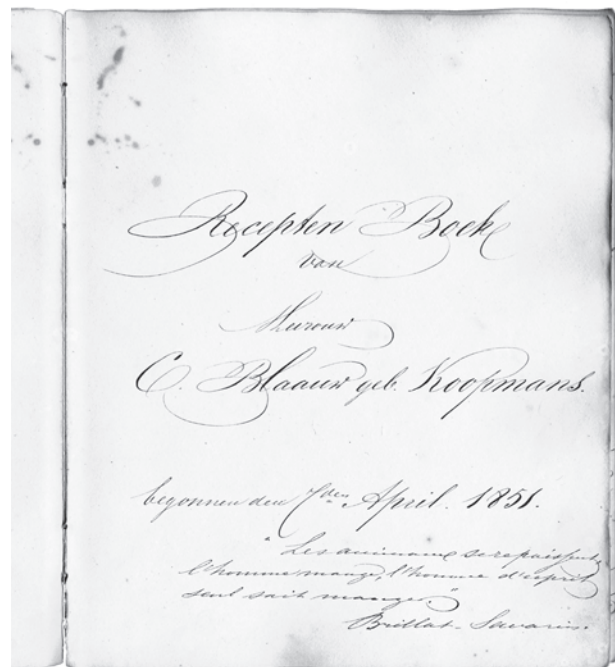 Recepten Boek
van
Mevrouw
C. Blaauw geb. Koopmans.
begonnen den 7den April. 1851.
"Les animaux se repaissent,
l'homme mange, l'homme d'esprit
seul sait manger"
Brillat-Savarin.